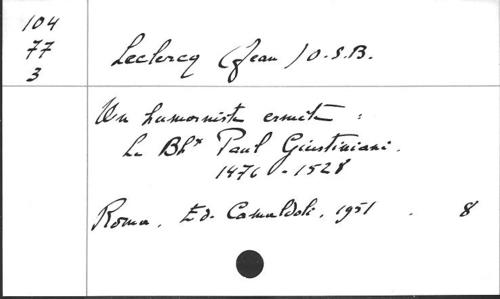 104
77
3
Leclercq (Jean) O.S.B.
Un humaniste ermite :
Le Bhx Paul Giustiniani.
1476 - 1528
Roma, Ed. Camaldoli, 1951 . 8